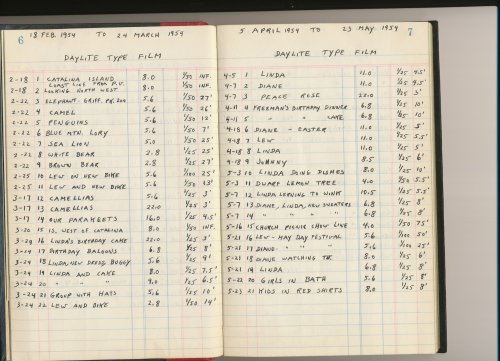 6
18 FEB. 1954 TO 24 MARCH 1954
DAYLITE TYPE FILM
2-18 1 CATALINA ISLAND 8.0 1/50 INF.
COAST LINE FROM P.V.
2-18 2 LOOKING NORTH WEST 8.0 1/50 INF.
2-22 3 ELEPHANT. GRIFF. PK. ZOO 5.6 1/50 27'
2-22 4 CAMEL 5.6 1/50 26'
2-22 5 PENGUINS 5.6 1/50 12'
2-22 6 BLUE MTN. LORY 5.6 1/50 7'
2-22 7 SEA LION 5.0 1/50 25'
2-22 8 WHITE BEAR 2.8 1/25 25'
2-22 9 BROWN BEAR 2.8 1/25 27'
2-25 10 LEW ON NEW BIKE 5.6 1/100 25'
2-25 11 LEW AND NEW BIKE 5.6 1/50 13'
3-17 12 CAMELIAS 5.6 1/25 3'
3-17 13 CAMELIAS 22.0 1/25 3'
3-17 14 OUR PARAKEETS 16.0 1/25 4.5'
3-20 15 IS. WEST OF CATALINA 8.0 1/50 INF.
3-24 16 LINDA'S BIRTHDAY CAKE 22.0 1/25 3'
3-24 17 BIRTHDAY BALOONS 6.8 1/25 8'
3-24 18 LINDA, NEW DRESS, BUGGY 5.6 1/25 9'
3-24 19 LINDA AND CAKE 8.0 1/25 7.5'
3-24 20 " " " 9.0 1/25 6.5'
3-24 21 GROUP WITH HATS 5.6 1/25 10'
3-24 22 LEW AND BIKE 2.8 1/50 14'
5 APRIL 1954 TO 23 MAY 1954
7
DAYLITE TYPE FILM
4-5 1 LINDA 11.0 1/25 4.5'
4-7 2 DIANE 11.0 1/25 4.5'
4-7 3 PEACE ROSE 22.0 1/25 3'
4-11 4 FREEMAN'S BIRTHDAY DINNER 6.8 1/25 10'
4-11 5 " " CAKE 6.8 1/25 10'
4-18 6 DIANE - EASTER 11.0 1/25 5'
4-18 7 LEW 11.0 1/25 5.5'
4-18 8 LINDA 11.0 1/25 5'
4-18 9 JOHNNY 8.5 1/25 6'
5-3 10 LINDA DOING DISHES 8.0 1/25 10'
5-3 11 DWARF LEMON TREE 4.0 1/50 5.5'
5-7 12 LINDA LERNING TO WINK 10.5 1/25 5.5'
5-7 13 DIANE, LINDA, NEW SWEATERS 6.8 1/25 8'
5-7 14 " " " " 6.8 1/25 8'
5-16 15 CHURCH PICNIC SHOW LINE 4.0 1/50 75'
5-21 16 LEW - MAY DAY FESTIVAL 5.6 1/100 50'
5-21 17 DIANE " " " 5.6 1/100 25'
5-21 18 DIANE WATCHING TV 8.0 1/25 6'
5-21 19 LINDA 6.8 1/25 8'
5-22 20 GIRLS IN BATH 5.6 1/25 8'
5-23 21 KIDS IN RED SHIRTS 8.0 1/25 8'